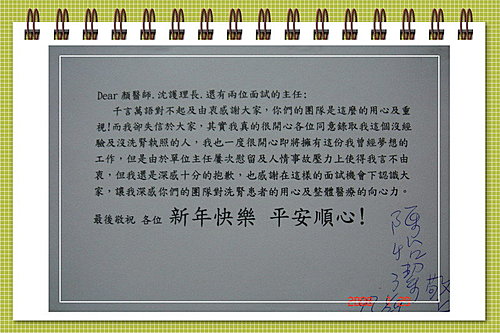 Dear 顏醫師.沈護理長.還有兩位面試的主任:
千言萬語對不起及由衷感謝大家，你們的團隊是這麼的用心及重
視!而我卻失信於大家，其實我真的很開心各位同意錄取我這個沒經
驗及沒洗腎執照的人，我也一度很開心即將擁有這份我曾經夢想的
工作，但是由於單位主任屢次慰留及人情事故壓力上使得我言不由
衷，但我還是深感十分的抱歉，也感謝在這樣的面試機會下認識大
家，讓我深感你們的團隊對洗腎患者的用心及整體醫療的向心力。
最後敬祝 各位 新年快樂 平安順心!